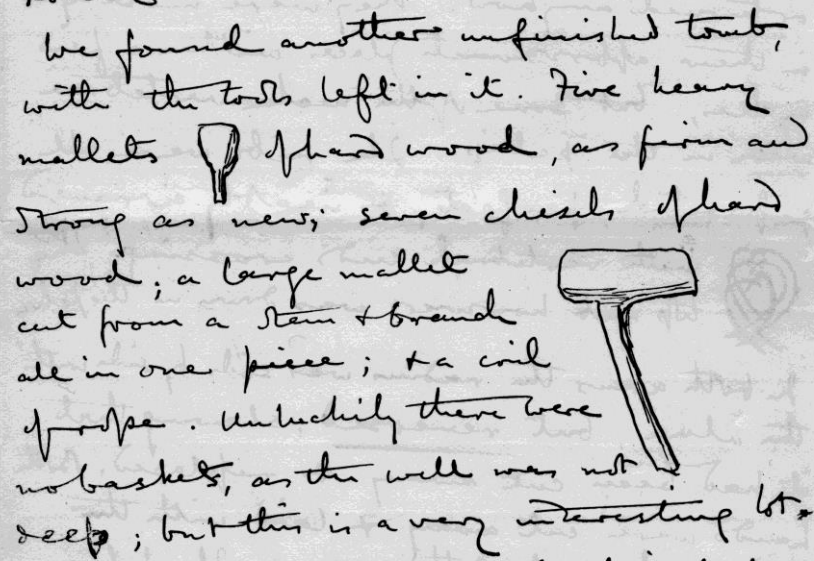 We found another unfinished tomb,
with the tools left in it. Five heavy
mallets of hard wood, as firm and
strong as new; seven chisels of hard
wood; a large mallet
cut from a stem & branch
all in one piece; & a coil
of rope. Unluckily there were
no baskets, as the well was not
deep; but this is a very interesting lot.